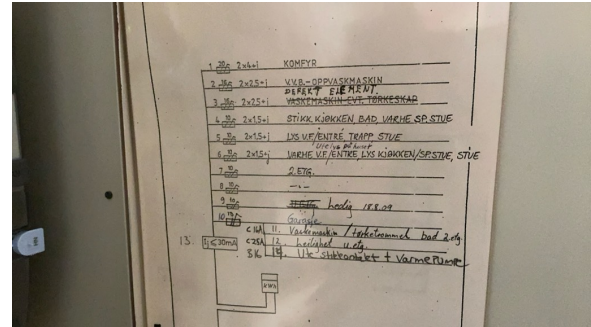 1 20 2x4+j KOMFYR
2 16 2x2.5+j V.V.B.-OPPVASKMASKIN
DEFEKT ELEMENT.
3 16 2x2.5+j VASKEMASKIN EVT. TØRKESKAP
4 10 2x1,5+j STIKK KJØKKEN, BAD, VARME SP.STUE
5 10 2x1,5+j LYS V.F/ENTRÉ, TRAPP, STUE
Utelys på huset
6 10 2x1,5+j VARME V.F/ENTRE, LYS KJØKKEN/SP.STUE, STUE
7 10 2.ETG.
8 10 -"-
9 10 ledig 18.8.09
10 Garasje
C16A 11. Vaskemaskin / tørketrommel bad 2.etg.
13. Ij ≤ 30mA C25A 12. Leilighet u.etg.
B16 Ute stikkontakt + VARMEPUMPE
kWh